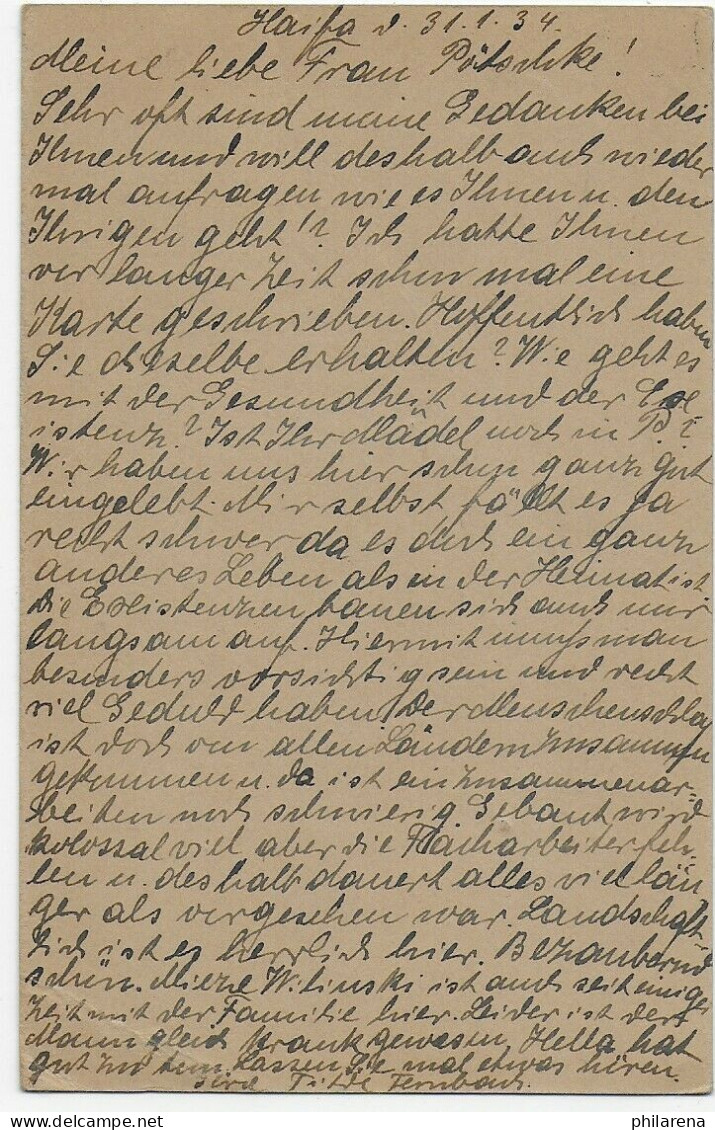 Haifa d. 31.1.34.
Meine liebe Frau Pötschke!
Sehr oft sind meine Gedanken bei
Ihnen und will deshalb auch wieder
mal anfragen wie es Ihnen u. den
Ihrigen geht!? Ich hatte Ihnen
vor langer Zeit schon mal eine
Karte geschrieben. Hoffentlich haben
Sie dieselbe erhalten? Wie geht es
mit der Gesundheit und der Ex-
istenz? Ist Ihr Mädel noch in P.?
Wir haben uns hier schon ganz gut
eingelebt. Mir selbst fällt es ja
recht schwer da es doch ein ganz
anderes Leben als in der Heimat ist
die Existenzen bauen sich auch nur
langsam auf. Hier mit muss man
besonders vorsichtig sein und recht
viel Geduld haben, der Menschenschlag
ist doch von allen Ländern zusammen
gekommen u. da ist ein zusammenar-
beiten noch schwierig. Gebaut wird
kolossal viel aber die Facharbeiter feh-
len u. deshalb dauert alles viel län
ger als vorgesehen war. Landschaft
lich ist es herrlich hier. Bezaubernd
schön. Mieze Wilinski ist auch seit einiger
Zeit mit der Familie hier. Leider ist der
Mann gleich krank gewesen, Hella hat
gut zu tun. Lassen Sie mal etwas hören.
Ihre Fernbach.
philarena.com